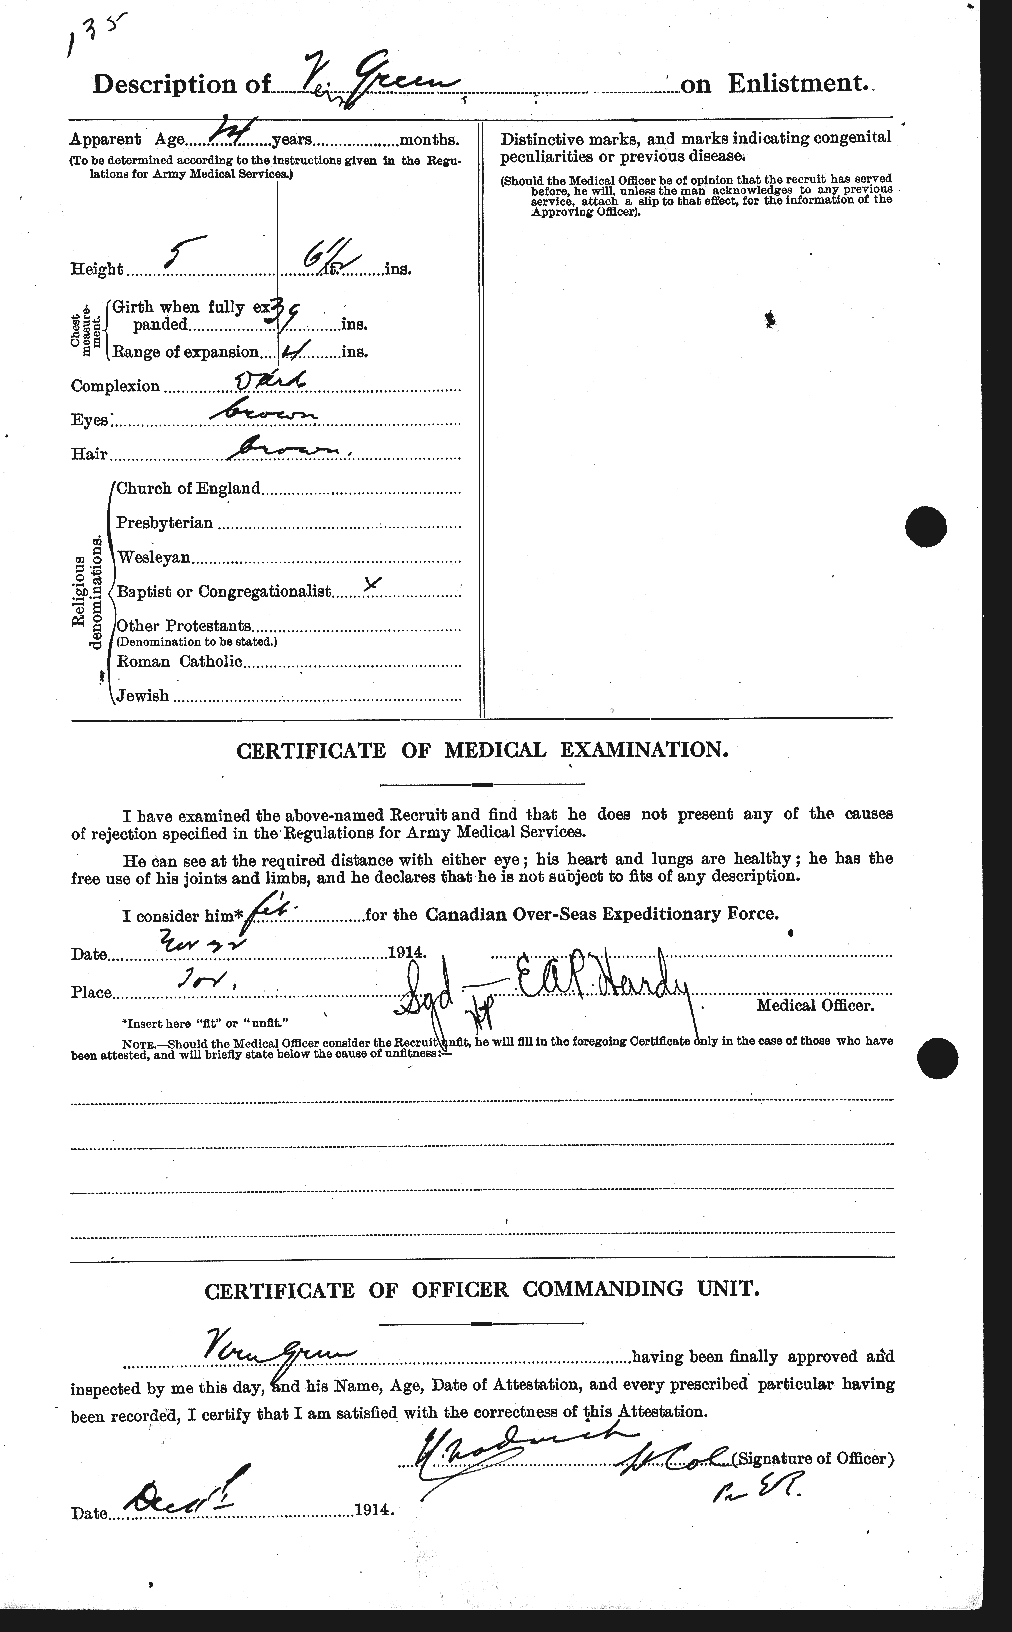 135
Description of Vern Green on Enlistment.
Apparent Age 24 years months.
(To be determined according to the instructions given in the Regu-
lations for Army Medical Services.)
Height 5 6 1/2 ins.
Chest measure-ment.
Girth when fully ex-
panded 39 ins.
Range of expansion 4 ins.
Complexion Dark
Eyes brown
Hair brown.
Religious denominations.
Church of England
Presbyterian
Wesleyan
Baptist or Congregationalist x
Other Protestants
(Denomination to be stated.)
Roman Catholic
Jewish
Distinctive marks, and marks indicating congenital
peculiarities or previous disease.
(Should the Medical Officer be of opinion that the recruit has served
before, he will, unless the man acknowledges to any previous
service, attach a slip to that effect, for the information of the
Approving Officer).
CERTIFICATE OF MEDICAL EXAMINATION.
I have examined the above-named Recruit and find that he does not present any of the causes
of rejection specified in the Regulations for Army Medical Services.
He can see at the required distance with either eye; his heart and lungs are healthy; he has the
free use of his joints and limbs, and he declares that he is not subject to fits of any description.
I consider him* fit for the Canadian Over-Seas Expeditionary Force.
Date Nov 22 1914.
Place Tor.
Sgd - E A P. Hardy
Medical Officer.
*Insert here "fit" or "unfit."
NOTE.—Should the Medical Officer consider the Recruit unfit, he will fill in the foregoing Certificate only in the case of those who have
been attested, and will briefly state below the cause of unfitness:—
CERTIFICATE OF OFFICER COMMANDING UNIT.
Vern Green having been finally approved and
inspected by me this day, and his Name, Age, Date of Attestation, and every prescribed particular having
been recorded, I certify that I am satisfied with the correctness of this Attestation.
Lt Col (Signature of Officer)
Date Dec 1914.